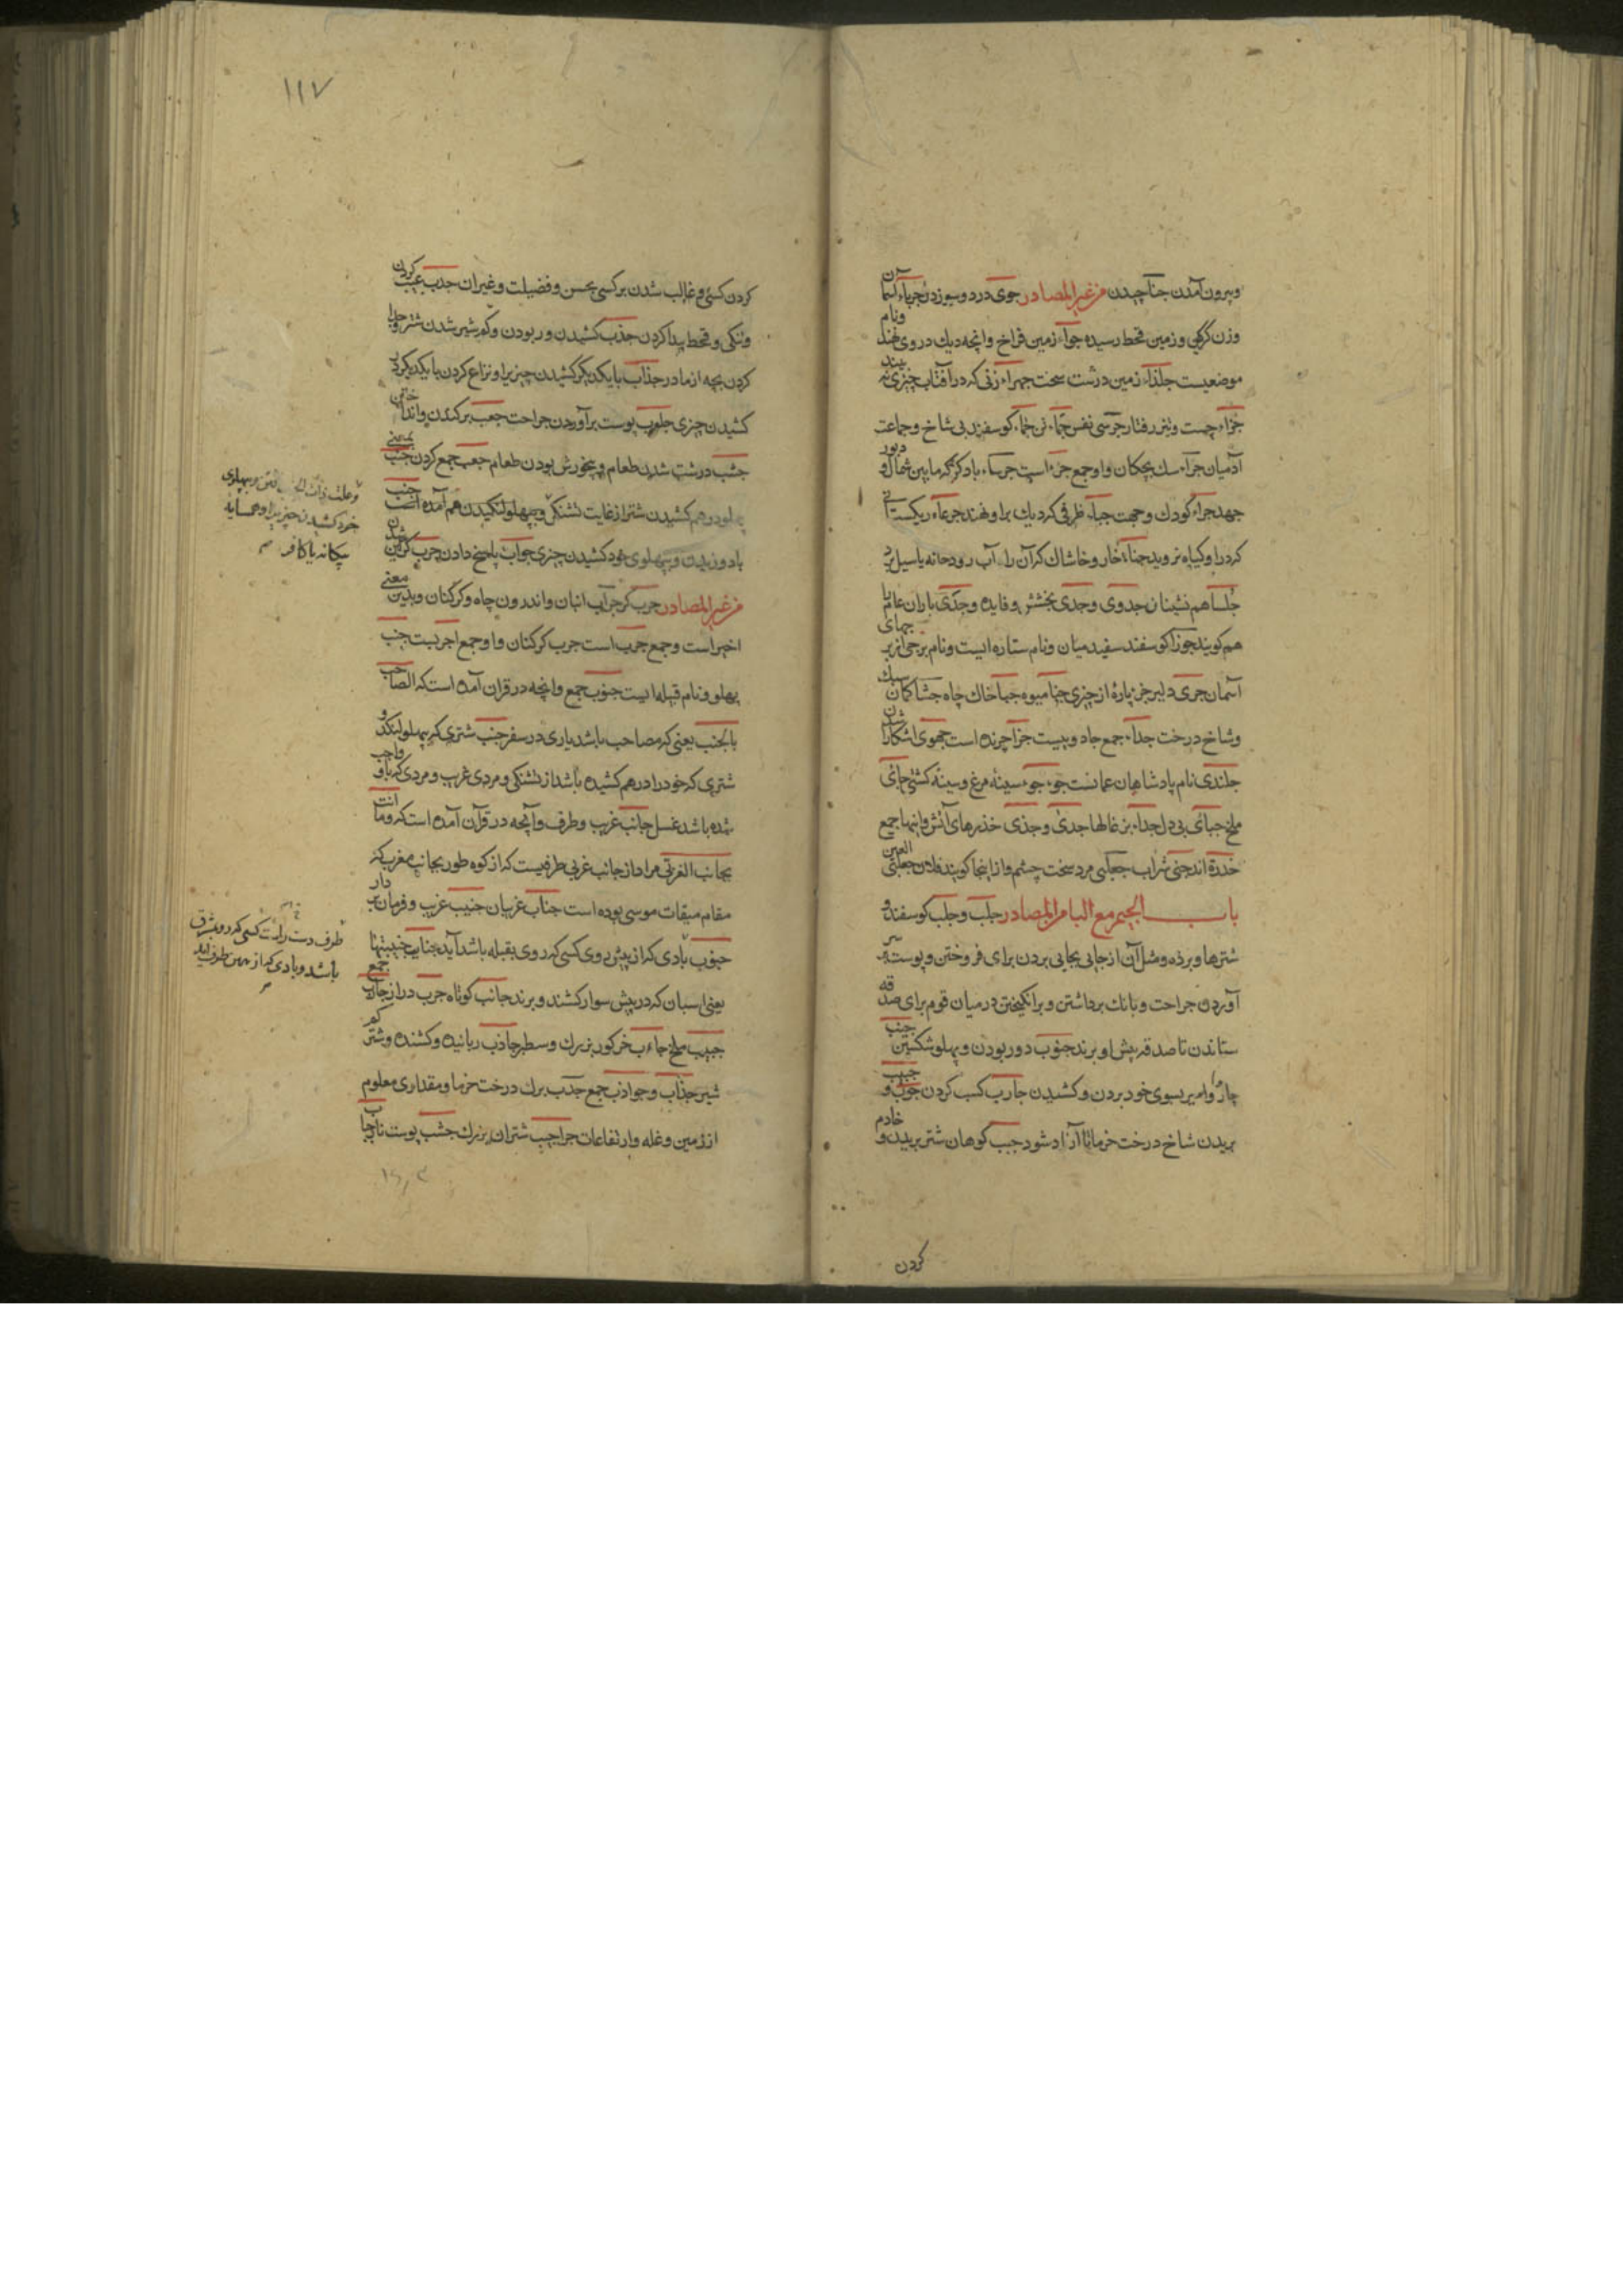 وبیرون آمدن جنا چیدن من غیر المصادر جوی درد و سوز دل جرباء آسمان
وزن کرکین و زمین قحط رسیده جواء زمین فراخ وانچه دیك در وی نهند ونام
موضعیست جلذاء زمین درشت سخت جهراء زنی که در آفتاب چیزی نه بیند
جمزاء چست وتیز رفتار جرشی نفس جماء تن جماء کوسفند بی شاخ وجماعت
آدمیان جراء سك بچکان واو جمع جرء است جربیاء باد کژ که ما بین شمال ودبور
جهد جراء کودك وحجت جباء ظرفی که دیك برا و نهند جرعاء ریکستانی
که درا وکیاه نروید جفاء خار وخاشاك که آن را آب رودخانه یا سیل برد
جلسا هم نشینان جدوی وجدی بخشش وفایده وجدی باران عام را
هم کویند جوزا کوسفند سفید میان ونام ستاره ایست ونام برجی از برجهای
آسمان جری دلیر جزء پارۀ از چیزی جنا میوه جبا خاك چاه جشا کمان سبك
وشاخ درخت جداء جمع جاد وبیست جزا چرنده است جهوی آشکارا شدن
جلندی نام پادشاهان عمانست جؤجؤ سینۀ مرغ وسینۀ کشتی جای
ملخ جبای بی دل جداء بزغالها جدی وجذی خذیرهای آتش واینها جمع
جذوة اند جنی شراب جعبی مرد سخت چشم واز اینجا کویند فلان جعبی العین
باب الجیم مع البا من المصادر جلب وجلب کوسفند و
شترها وبرده ومثل آن از جایی بجایی بردن برای فروختن وپوست بر سر
آوردن جراحت وبانك برداشتن وبرانکیختن در میان قوم برای صدقه
ستاندن تا صدقه پیش او برند جنوب دور بودن وپهلو شکستن جنب
چاروا وامیر بسوی خود بردن وکشیدن جارب کسب کردن جوب وجبب
بریدن شاخ درخت خرما تا آزاد شود جبب کوهان شتر بریدن وخادم
کردن
١١٧
کردن کسی وغالب شدن بر کسی بحسن وفضیلت وغیر آن جدب عیب کردن
وتنکی وقحط پیدا کردن جذب کشیدن وربودن وکم شیر شدن شتر وجدا
کردن بچه از مادر جذاب با یکدیکر کشیدن چیزیرا ونزاع کردن با یکدیکر در
کشیدن چیزی جلوب پوست برآوردن جراحت جعب برکندن وانداختن
جشب درشت شدن طعام وبیخورش بودن طعام جعب جمع کردن جنب بمعنی
پهلو درهم کشیدن شتر از غایت تشنکی وبپهلو لنکیدن هم آمده است جنب
باد وزیدن وبپهلوی خود کشیدن چیزی جواب پاسخ دادن جرب کرکین شدن
من غیر المصادر جرب کر جراب انبان واندرون چاه وکرکنان وبدین معنی
اخیر است وجمع جرب است جرب کرکنان واو جمع اجربست جنب
پهلو ونام قبیله ایست جنوب جمع وانچه در قران آمده است که الصاحب
بالجنب یعنی که مصاحب باشد یاری در سفر جنب شتری که بپهلو لنکد و
شتری که خود را درهم کشیده باشد از تشنکی ومردی غریب ومردی که باو واجب
شده باشد غسل جانب غریب وطرف وآنچه در قرآن آمده است که وما انت
بجانب الغربی مراد از جانب غربی طرفیست که از کوه طور بجانب مغرب که
مقام میقات موسی بوده است جناب غریبان جنیب غریب وفرمان بردار
جنوب بادی که از پیش روی کسی که روی بقبله باشد آید جنایب جنیبتها
یعنی اسبان که در پیش سوار کشند وبرند جانب کوتاه جرب دراز جارب جمع
جبیب ملخ جاءب خر کور بزرك وسطبر جاذب رباینده وکشنده وشتر کم
شیر جذاب وجواذب جمع جذب برك درخت خرما ومقداری معلوم
از زمین وغله وارتفاعات جراجب شتران بزرك جشب پوست نار جاب
خود کشیدن چیزیرا وهمسایه
بیکانه یا کافر
طرف دست راست کسی که رو بمشرق
باشد وبادی که از همین طرف آید